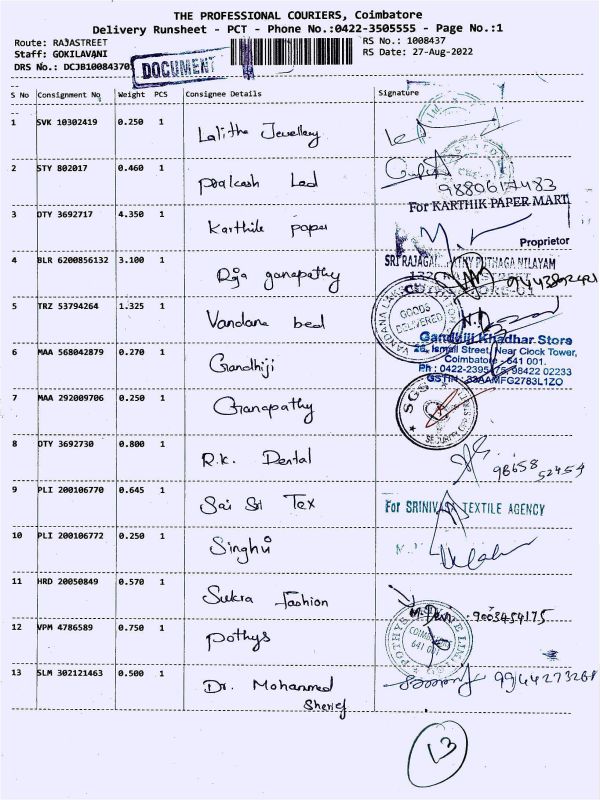 THE PROFESSIONAL COURIERS, Coimbatore
Delivery Runsheet - PCT - Phone No.:0422-3505555 - Page No.:1
Route: RAJASTREET RS No.: 1008437
Staff: GOKILAVANI RS Date: 27-Aug-2022
DRS No.: DCJB10084370
DOCUMENT
S No Consignment No Weight PCS Consignee Details Signature
1 SVK 10302419 0.250 1 Lalitha Jewellery
2 STY 802017 0.460 1 Pralcash Led
9880617483
3 OTY 3692717 4.350 1 Karthik paper
For KARTHIK PAPER MART
Proprietor
4 BLR 6200856132 3.100 1 Raja ganapathy
SRI RAJAGANAPATHY PUTHAGA NILAYAM
5 TRZ 53794264 1.325 1 Vandana bed
GOODS DELIVERED
6 MAA 568042879 0.270 1 Gandhiji
Gandhiji Khadhar Store
26, Ismail Street, Near Clock Tower,
Coimbatore - 641 001.
Ph : 0422-2395475, 98422 02233
GSTIN : 33AAMFG2783L1ZO
7 MAA 292009706 0.250 1 Granapathy
SGS
8 OTY 3692730 0.800 1 R.K. Dental
98658 52454
9 PLI 200106770 0.645 1 Sai Sri Tex
For SRINIVASA TEXTILE AGENCY
10 PLI 200106772 0.250 1 Singhvi
11 HRD 20050849 0.570 1 Sukra Fashion
9003454175
12 VPM 4786589 0.750 1 Pothys
POTHYS
COIMBATORE
641 001
13 SLM 302121463 0.500 1 Dr. Mohammed
Sherief
9944273268
13